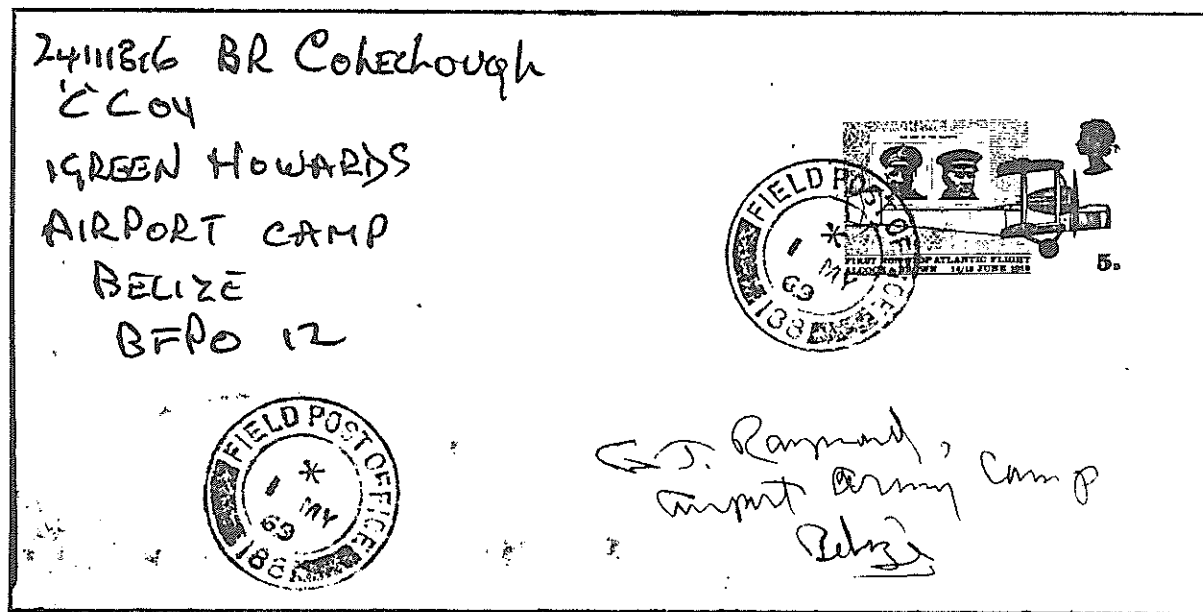 BR
'C' COY
1 GREEN HOWARDS
AIRPORT CAMP
BELIZE
BFPO 12
FIELD POST OFFICE
1 MY
69
FIRST OF ATLANTIC FLIGHT
ALCOCK & BROWN 14/15 JUNE 1919
5D
FIELD POST OFFICE
1 MY
69
G J. Raymond,
Airport Army Camp
Belize